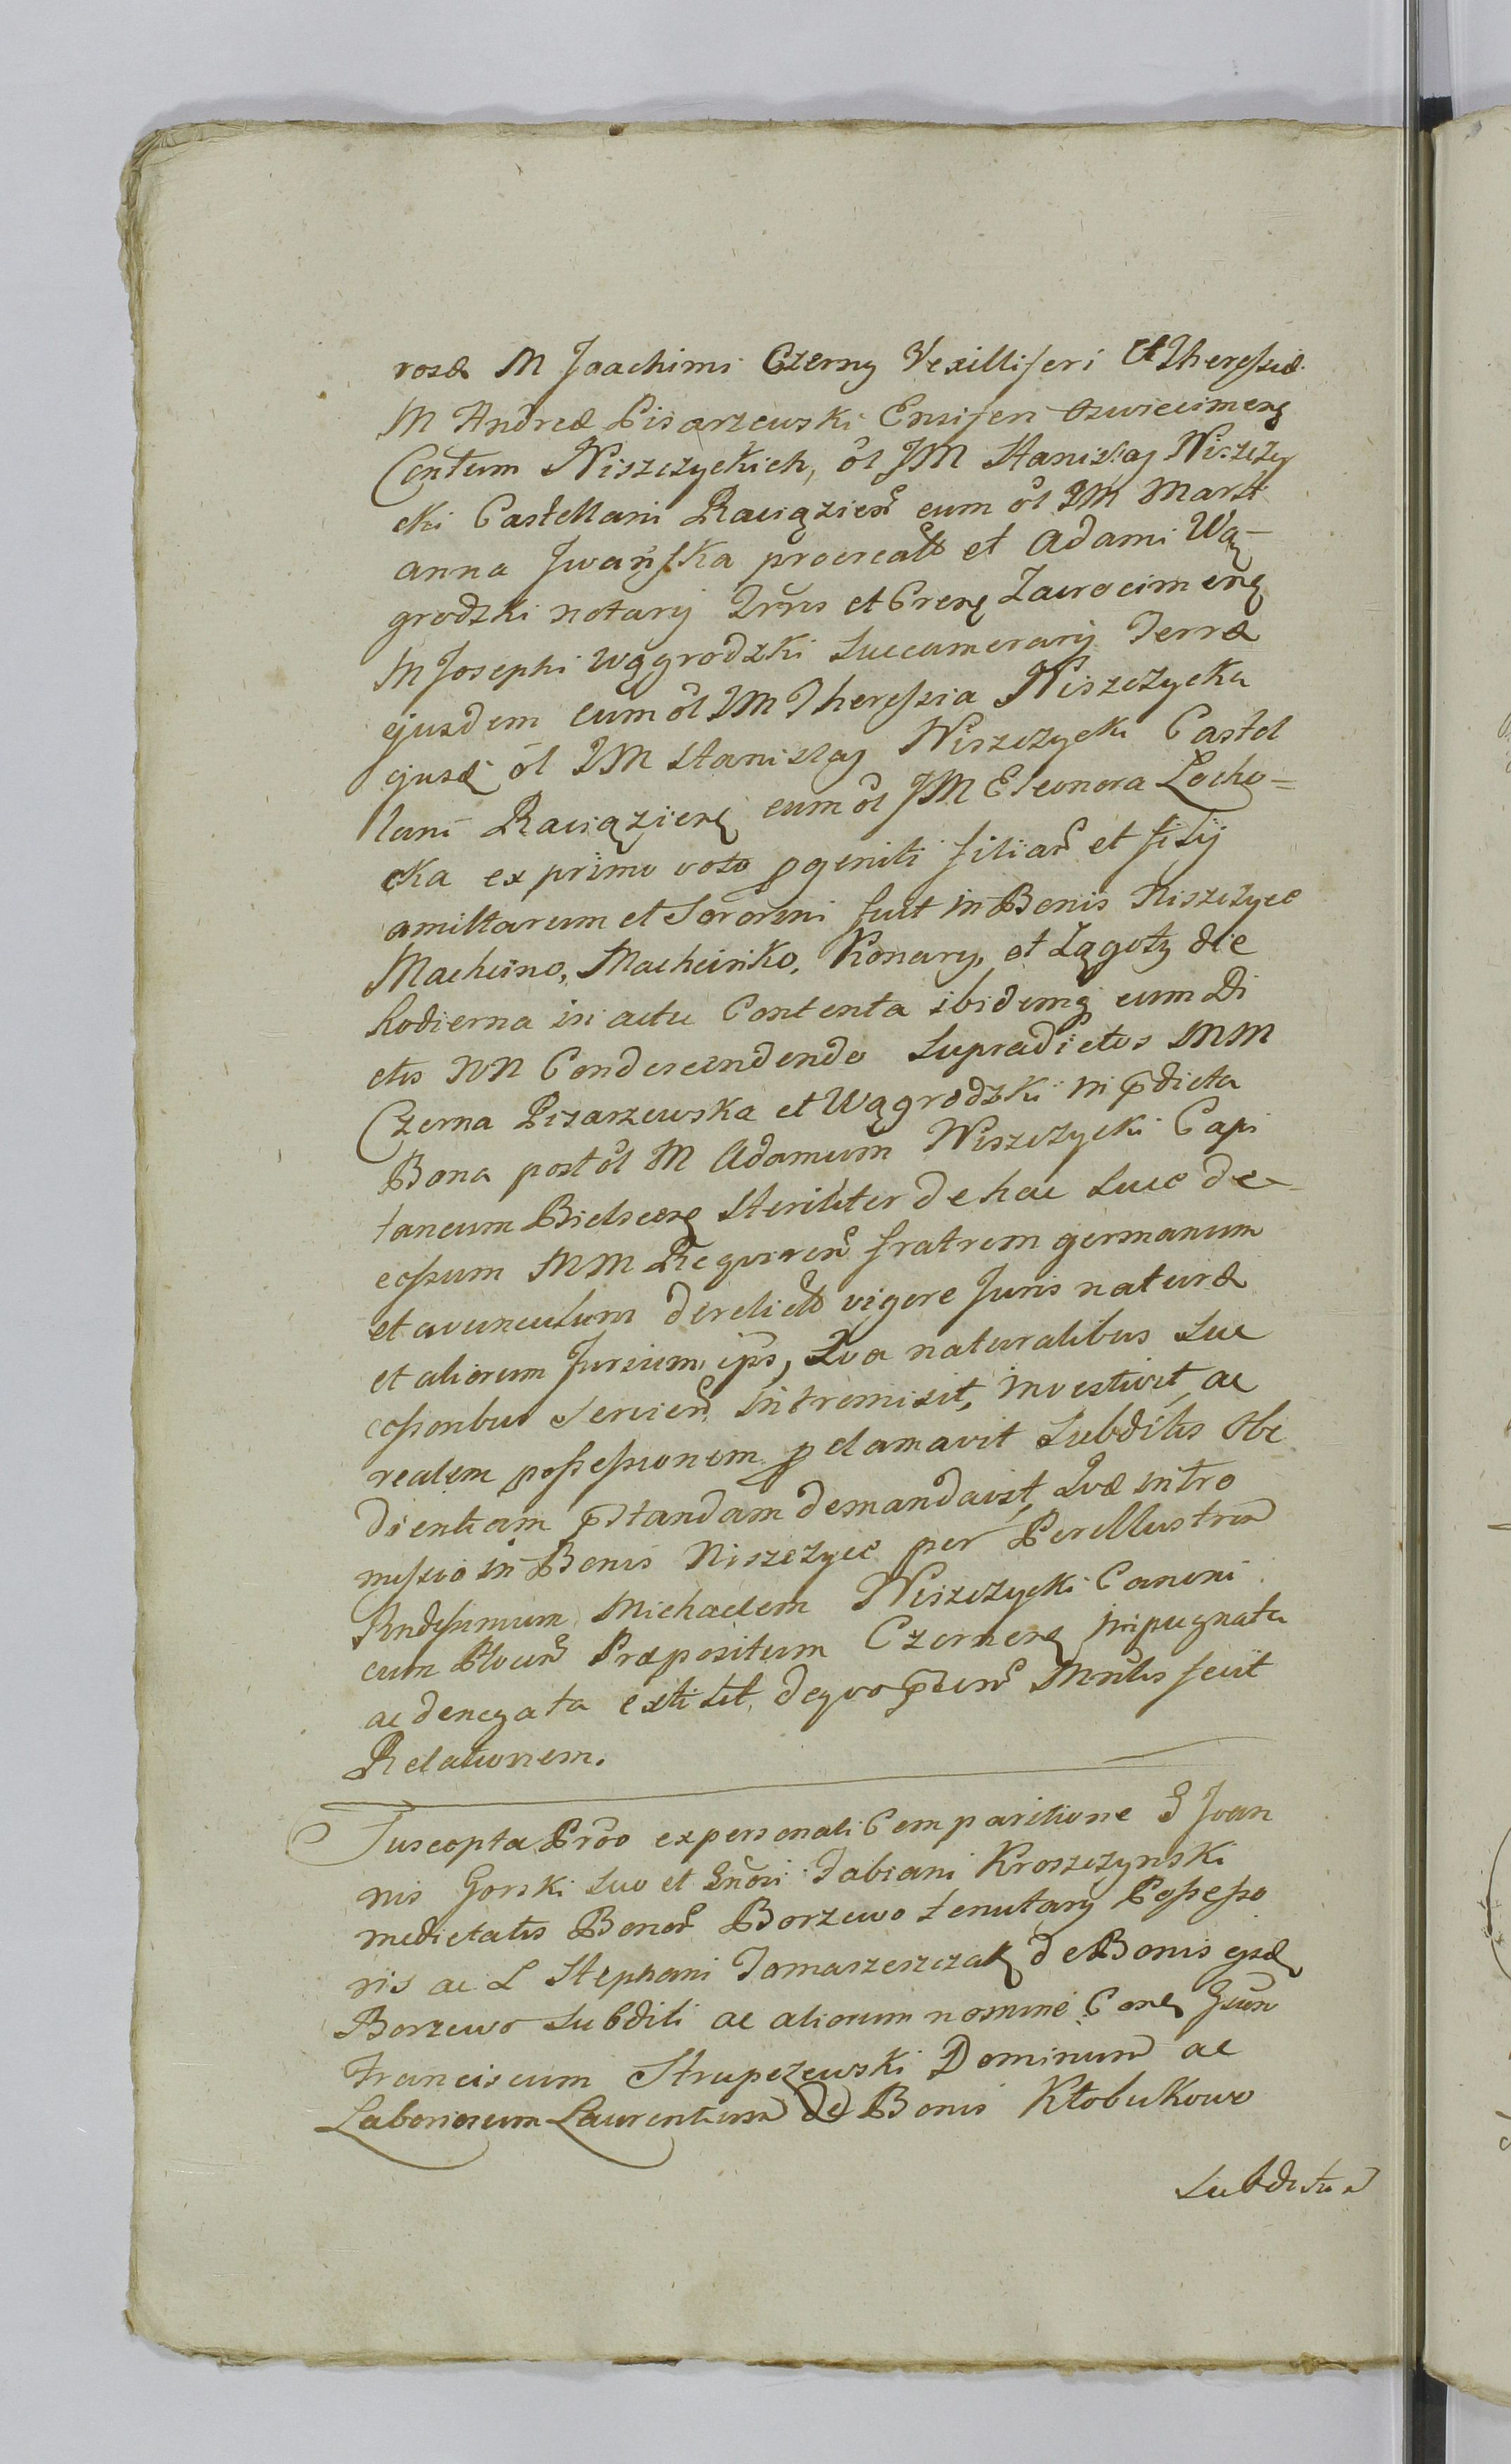 rosæ M Joachimi Czerny Vexilliferi et Theressiæ
M Andreæ Pisarzewski Ensiferi Oswiecimens
Contum Niszczyckich, ol JM Stanislaj Niszczy
cki Castellani Raciązien cum ol JM Mari
anna Jwańska procreato et Adami Wą-
grodzki notarij Trris et Crens Zacrocimens
M Josephi Wągrodzki Succamerarij Terræ
ejusdem cum ol JM Theressia Niszczycka
ejusd ol JM Stanislaj Niszczycki Castel
lani Raciąziens cum ol JM Eleonora Locho=
cka ex primo voto pgeniti filiar et filij
amittarum et Sororini fuit in Bonis Niszczyce
Machcino, Machcinko, Konary, et Lągoty die
hodierna in actu Contenta ibidemq cum Di
ctis NN Condescendendo Supradictos MM
Czerna Pisarzewska et Wągrodzki in pdicta
Bona post ol M Adamum Niszczycki Capi
taneum Bielscens Steriliter de hac Luce de-
cessum MM Requiren fratrem germanum
et avunculum derelicto vigore Juris naturæ
et aliorum Jurium ips, Qva naturalibus Suc
cessoribus Servien intromisit, investivit, ac
realem possessionem pclamavit Subditis Obe
dientiam pstandam demandavit, Qvæ intro
missio in Bonis Niszczyce per Perillustrem
Rndissimum Michaelem Niszczycki Canoni
cum Plocen Præpositum Czernens impugnata
ac denegata extitit, deqvo pdtus Mnlis fecit
Relationem.
Suscepta Prôo ex personali Comparitione G Joan
nis Gorski Suo et Gnôsi Fabiani Kroszczynski
medietatis Bonor Borzewo Tenutarij Possesso
ris ac L Stephani Tomaszeszczak de Bonis ejsd
Borzewo Subditi ac aliorum nomine Cons Gsum
Franciscum Strupczewski Dominum ac
Laboriosum Laurentium de Bonis Kłobukowo
Subditum